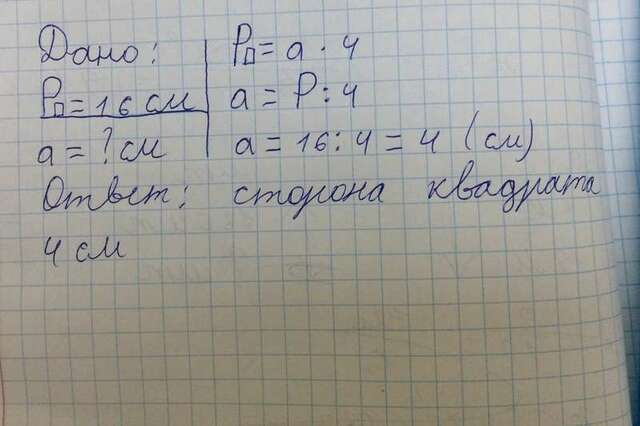 Дано: P□ = a · 4
P□ = 16 см a = P : 4
a = ? см a = 16 : 4 = 4 (см)
Ответ: сторона квадрата
4 см